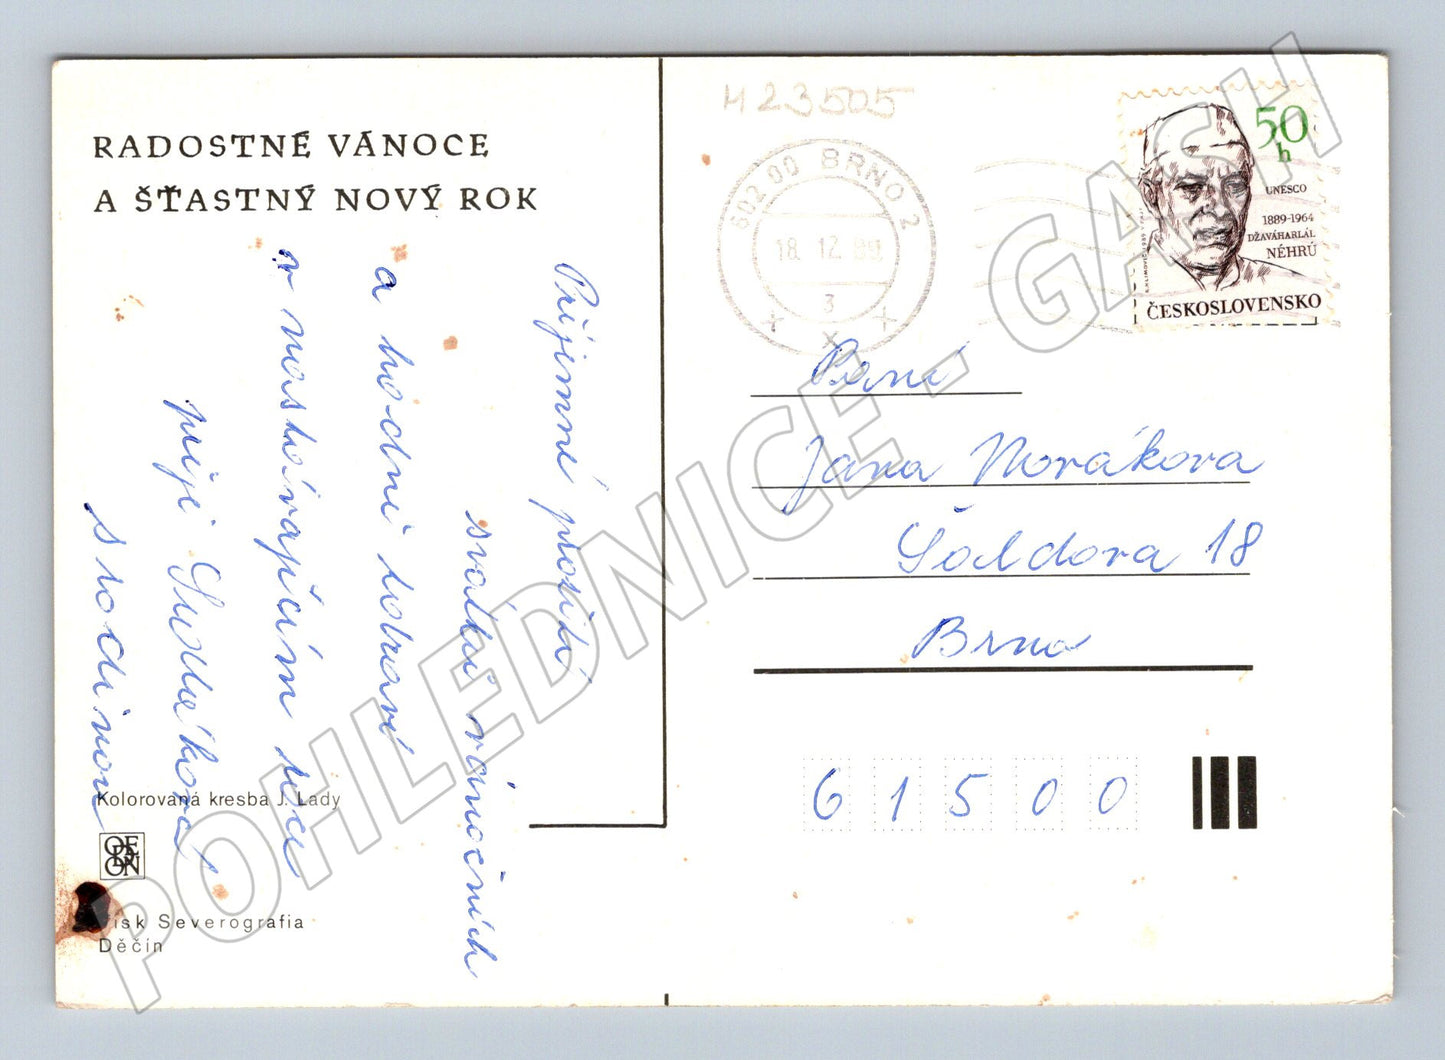 RADOSTNÉ VÁNOCE
A ŠŤASTNÝ NOVÝ ROK
Příjemné prožití
svátků vánočních
a hodně zdraví
v nastávajícím roce
přeje
s rodinou
Kolorovaná kresba J. Lady
ODEON
Tisk Severografia
Děčín
M23505
602 00 BRNO 2
18. 12. 89
3
50 h
UNESCO
1889-1964
DŽAVÁHARLÁL
NÉHRÚ
ČESKOSLOVENSKO
Paní
Jana Novákova
Šaldova 18
Brno
61500
POHLEDNICE - GASH